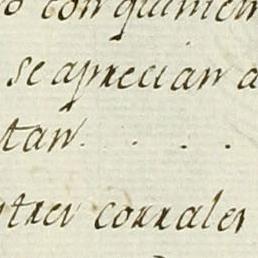 con quinien
se aprecian a
tan. . . .
tres corrales